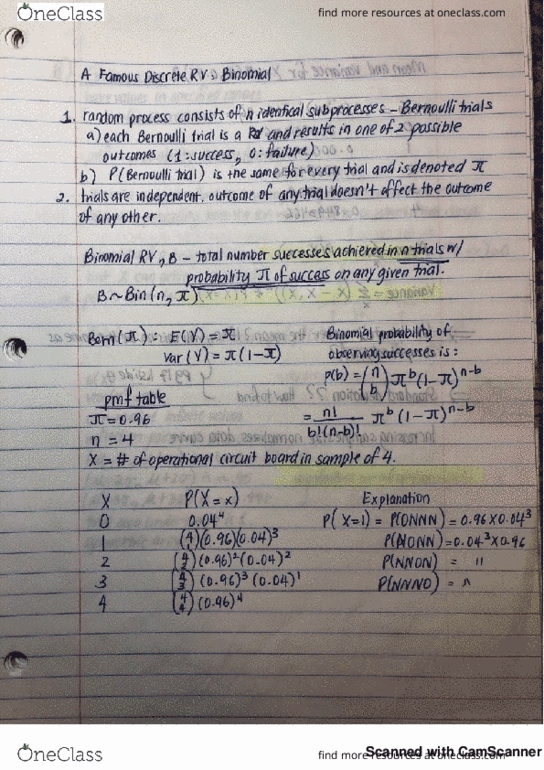 OneClass
find more resources at oneclass.com
A Famous Discrete RV: Binomial
1. random process consists of n identical subprocesses - Bernoulli trials
a) each Bernoulli trial is a and results in one of 2 possible
outcomes (1:success, 0:failure)
b) P(Bernoulli trial) is the same for every trial and is denoted π
2. trials are independent. outcome of any trial doesn't affect the outcome
of any other.
Binomial RV, B - total number successes achieved in n trials w/
probability π of success on any given trial.
B~Bin(n, π)
Bern(π): E(Y) = π
Var(Y) = π(1-π)
Binomial probability of
observing successes is:
p(b) = (n b) π^b (1-π)^n-b
= n! / b!(n-b)! π^b (1-π)^n-b
pmf table
π = 0.96
n = 4
X = # of operational circuit board in sample of 4.
X P(X=x) Explanation
0 0.04^4 P(X=1) = P(ONNN) = 0.96 x 0.04^3
1 (4 1)(0.96)(0.04)^3 P(NONN) = 0.04^3 x 0.96
2 (4 2)(0.96)^2(0.04)^2 P(NNON) = "
3 (4 3)(0.96)^3(0.04)^1 P(NNNO) = "
4 (4 4)(0.96)^4
Scanned with CamScanner
OneClass
find more resources at oneclass.com